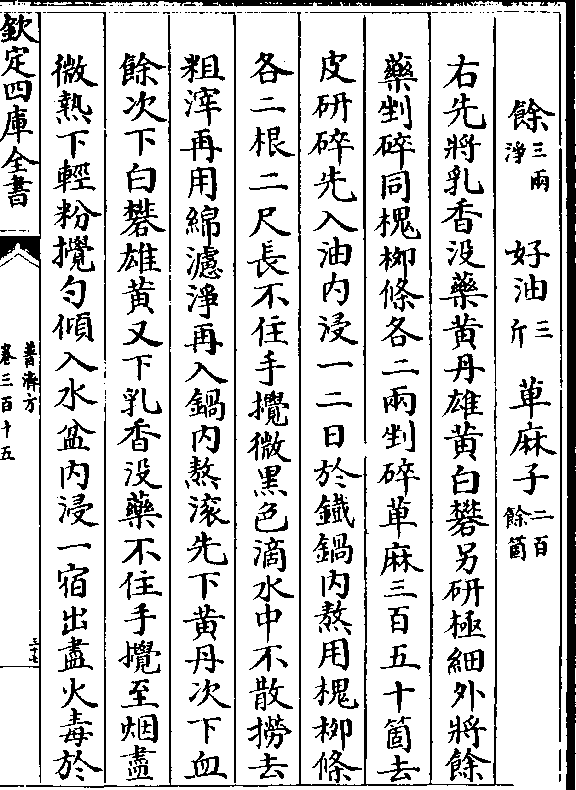 餘三兩淨 好油三斤 萆麻子二百餘箇
右先將乳香没藥黄丹雄黄白礬另研極細外將餘
藥剉碎同槐栁條各二兩剉碎萆麻三百五十箇去
皮研碎先入油内浸一二日於鐵鍋内熬用槐栁條
各二根二尺長不住手攪微黒色滴水中不散撈去
粗滓再用綿濾淨再入鍋内熬滚先下黄丹次下血
餘次下白礬雄黄又下乳香没藥不住手攪至烟盡
微熱下輕粉攪匀傾入水盆内浸一宿出盡火毒於
欽定四庫全書
普濟方
卷三百十五
三十七